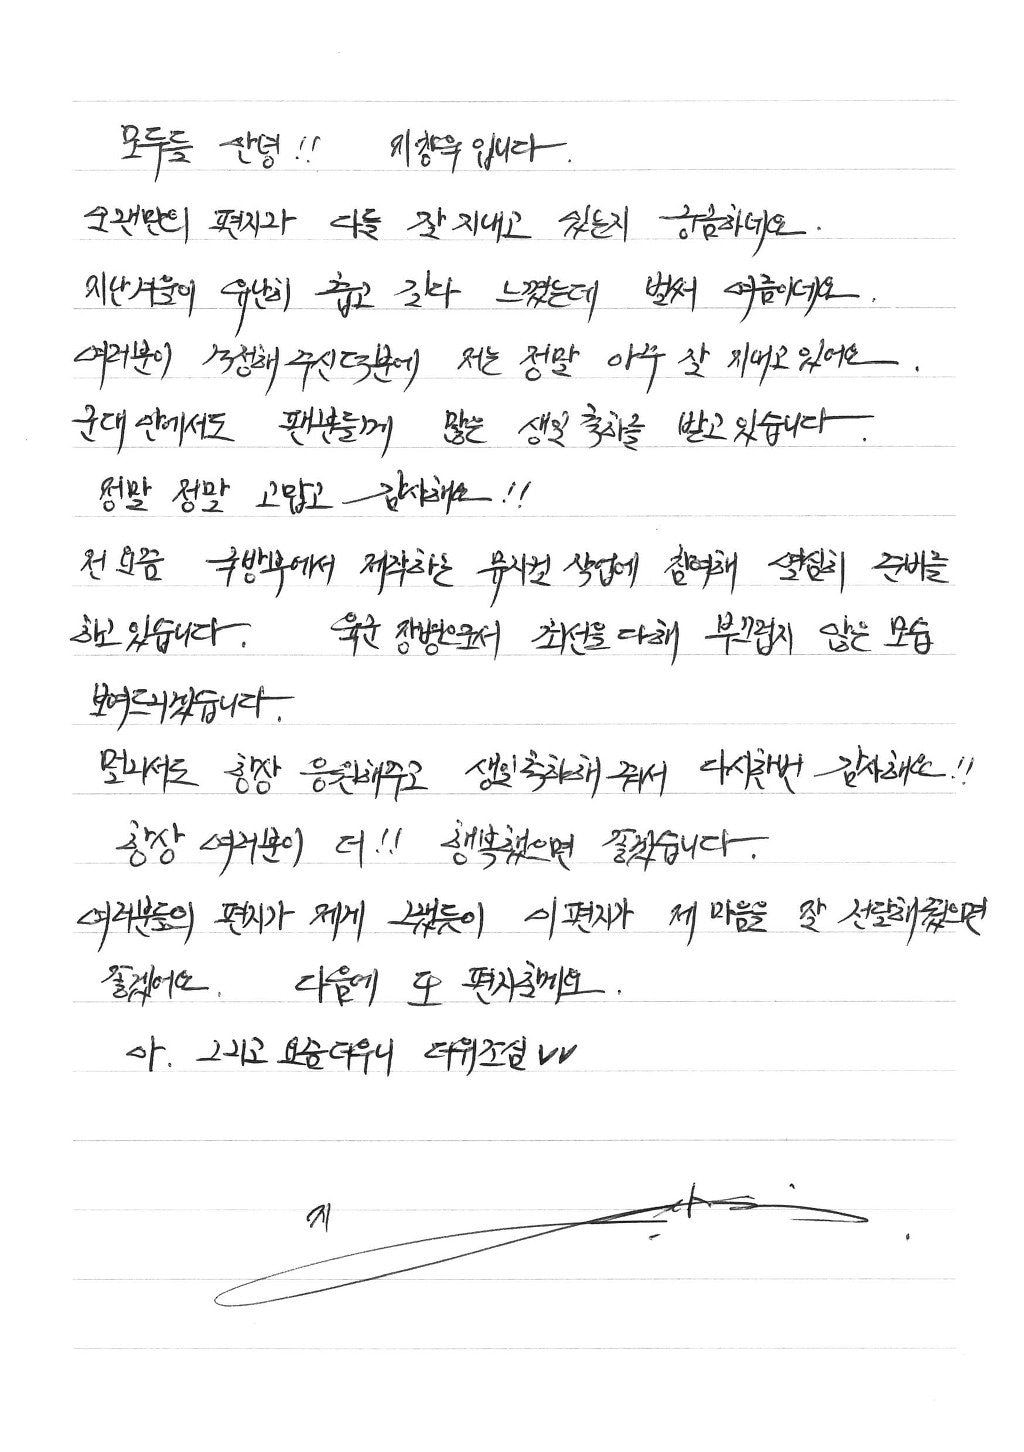 모두들 안녕!! 지창욱입니다.
오랜만의 편지라 다들 잘 지내고 있는지 궁금하네요.
지난겨울이 유난히 춥고 길다 느꼈는데 벌써 여름이네요.
여러분이 걱정해 주신 덕분에 저는 정말 아주 잘 지내고 있어요.
군대 안에서도 팬분들께 많은 생일 축하를 받고 있습니다.
정말 정말 고맙고 감사해요!!
전 요즘 국방부에서 제작하는 뮤지컬 작업에 참여해 열심히 준비를
하고 있습니다. 육군 장병으로서 최선을 다해 부끄럽지 않은 모습
보여드리겠습니다.
멀리서도 항상 응원해주고 생일축하해 줘서 다시한번 감사해요!!
항상 여러분이 더!! 행복했으면 좋겠습니다.
여러분들의 편지가 제게 그랬듯이 이 편지가 제 마음을 잘 전달해줬으면
좋겠어요. 다음에 또 편지할게요.
아. 그리고 요즘 더우니 더위조심 VV
지